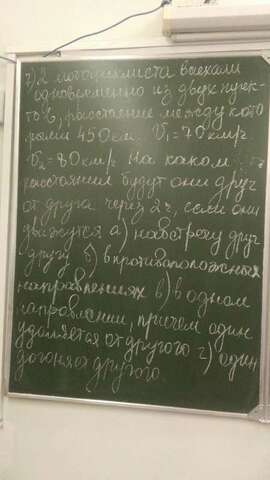 2) 2 мотоциклиста выехали
одновременно из двух пунк-
тов, расстояние между кото
рыми 450 км. V₁ = 70 км/ч
V₂ = 80 км/ч На каком
расстоянии будут они друг
от друга через 2ч, если они
движутся а) навстречу друг
другу б) в противоположных
направлениях в) в одном
направлении, причем один
удаляется от другого г) один
догоняет другого